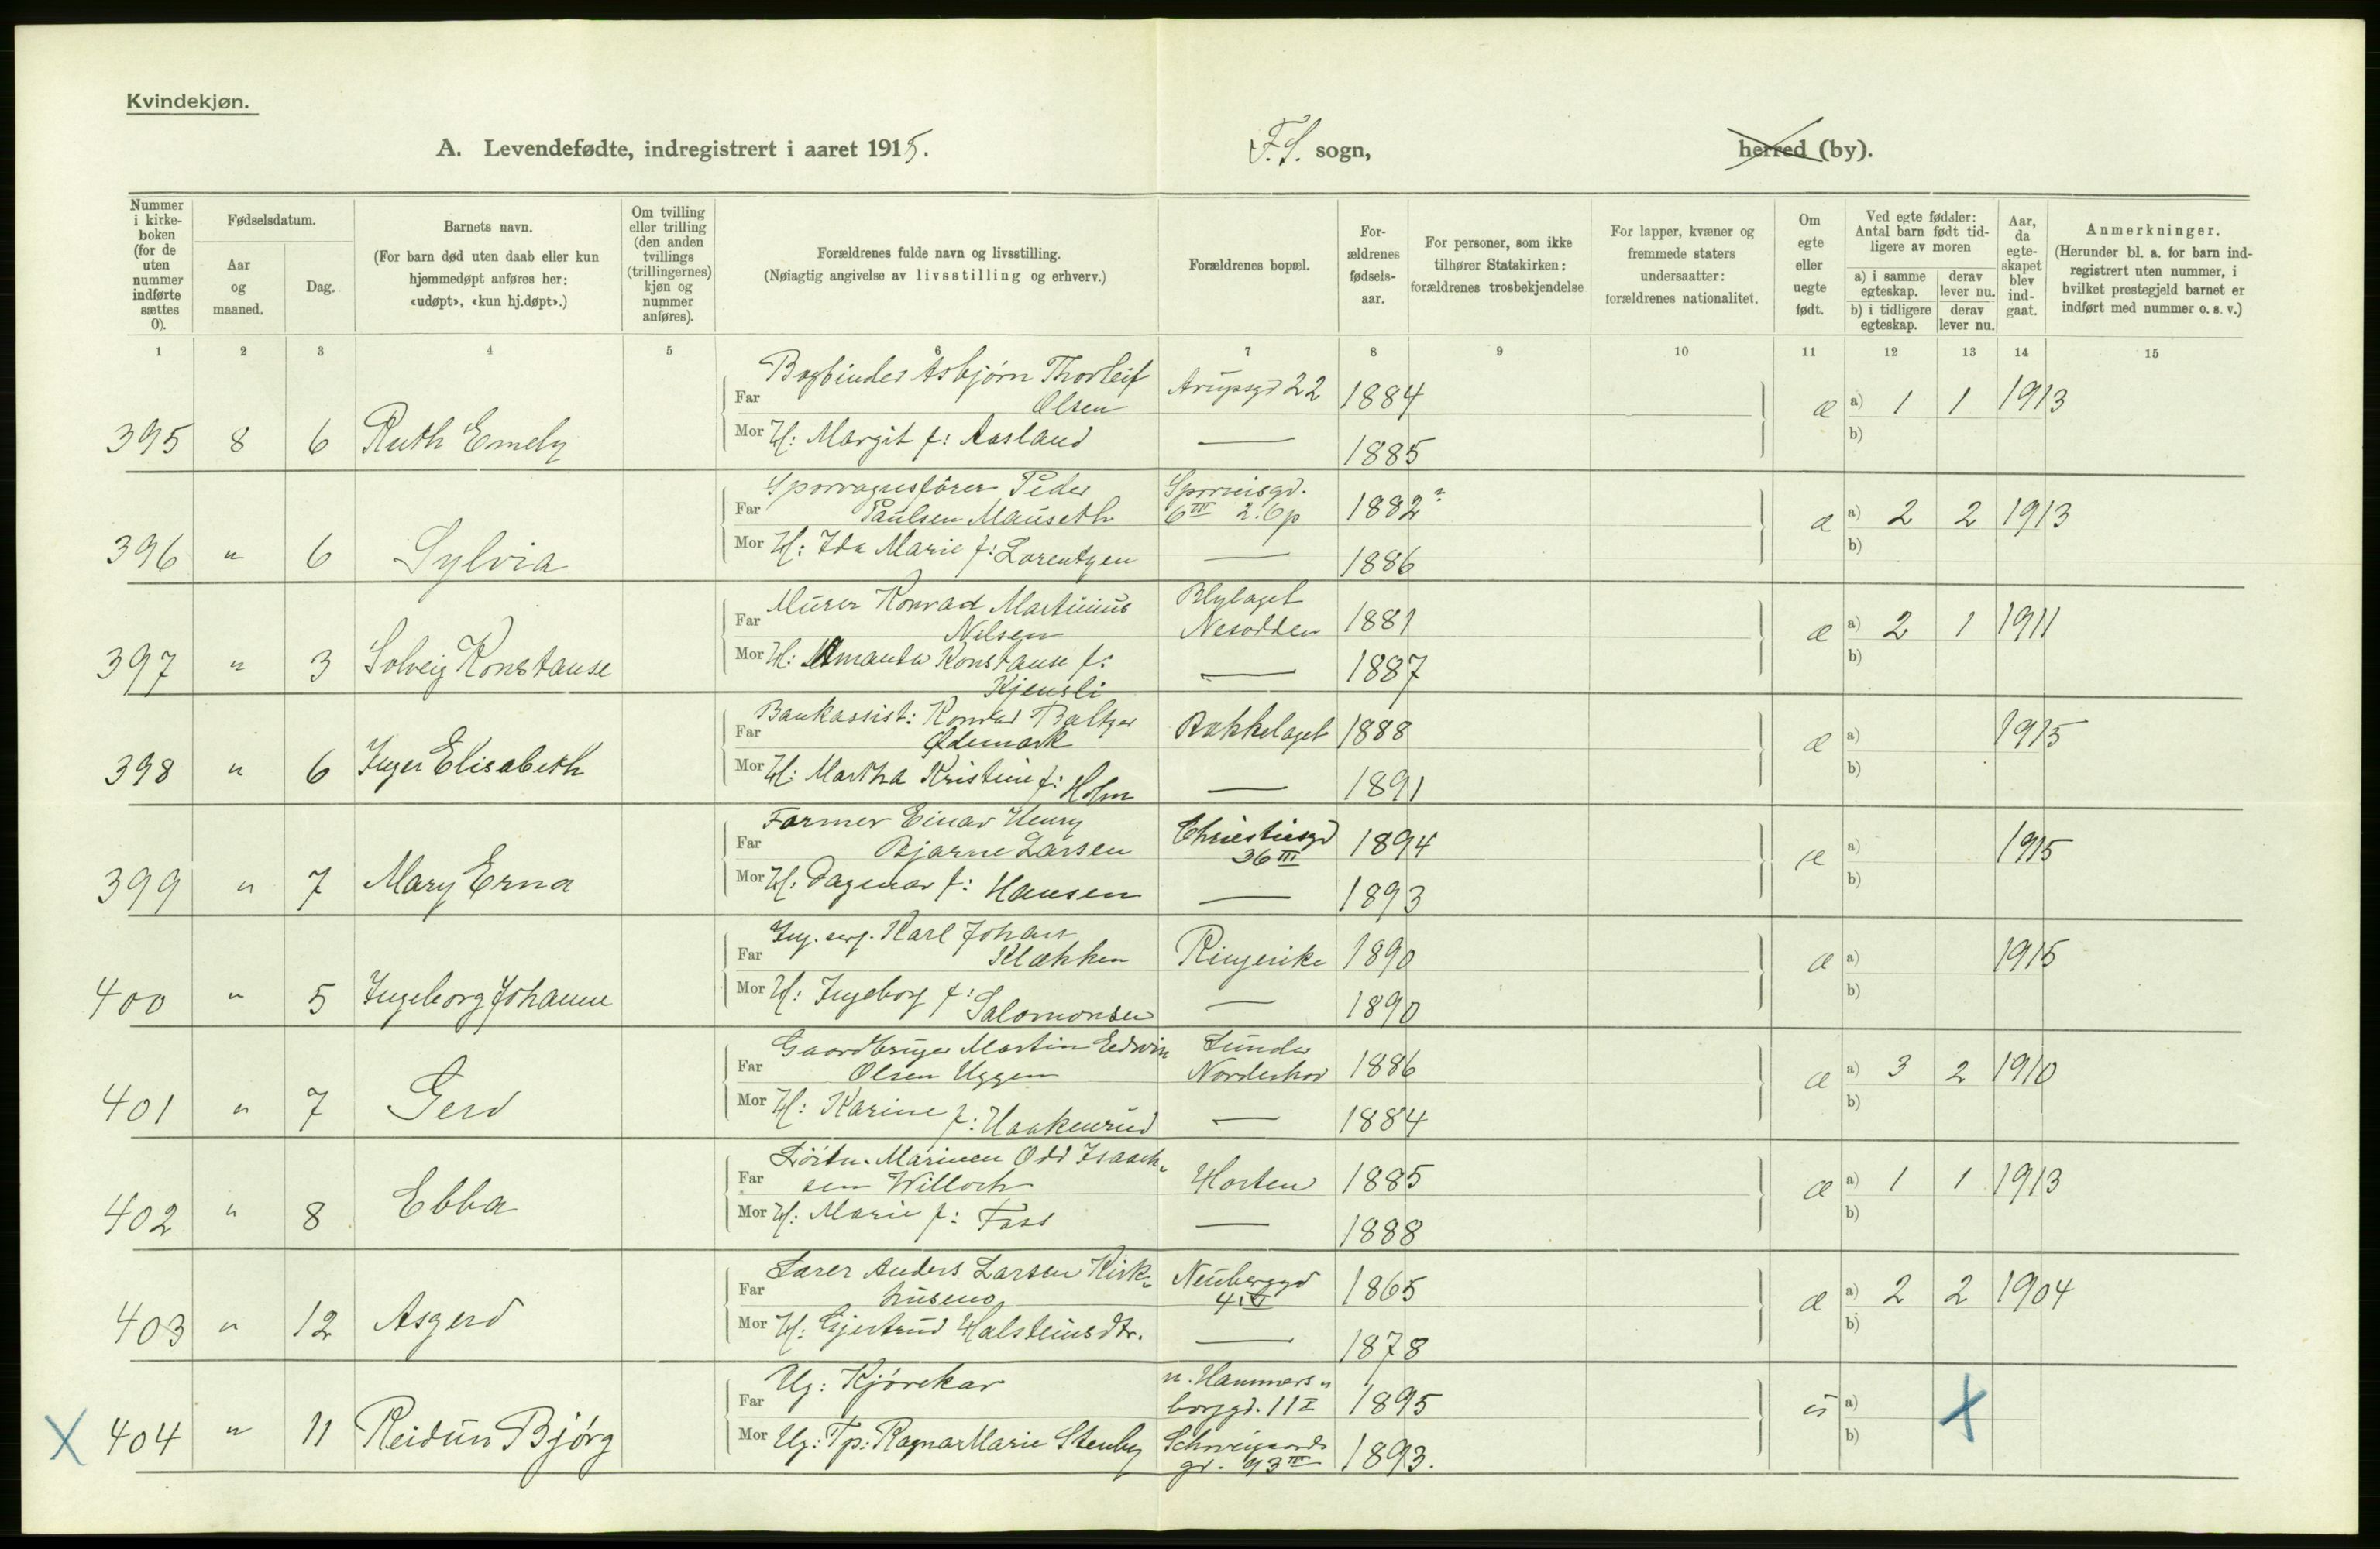 Kvindekjøn.
A. Levendefødte, indregistrert i aaret 1915. F.S. sogn, herred (by).
Nummer i kirke-boken (for de uten nummer indførte sættes 0).
Fødselsdatum.
Aar og maaned.
Dag.
Barnets navn.
(For barn død uten daab eller kun hjemmedøpt anføres her: «udøpt», «kun hj.døpt».)
Om tvilling eller trilling (den anden tvillings (trillingernes) kjøn og nummer anføres).
Forældrenes fulde navn og livsstilling.
(Nøiagtig angivelse av livsstilling og erhverv.)
Forældrenes bopæl.
For-ældrenes fødsels-aar.
For personer, som ikke tilhører Statskirken: forældrenes trosbekjendelse
For lapper, kvæner og fremmede staters undersaatter: forældrenes nationalitet.
Om egte eller uegte født.
Ved egte fødsler: Antal barn født tid-ligere av moren
a) i samme egteskap. derav lever nu.
b) i tidligere egteskap. derav lever nu.
Aar, da egte-skapet blev ind-gaat.
Anmerkninger.
(Herunder bl. a. for barn ind-registrert uten nummer, i hvilket prestegjeld barnet er indført med nummer o. s. v.)
1 2 3 4 5 6 7 8 9 10 11 12 13 14 15
Bogbinder Asbjørn Thorleif
Far Olsen Arupsgd 22 1884
395 8 6 Ruth Emely Mor H: Margit f: Aasland — 1885 æ a) 1 1 1913
b)
Sporvagnsfører Peder Sporveisgd.
Far Paulsen Mauseth 6 III 2.Op 1882
396 " 6 Sylvia Mor H: Ida Marie f: Lorentzen — 1886 æ a) 2 2 1913
b)
Murer Konrad Martinius Blylaget
Far Nilsen Nesodden 1881
397 " 3 Solveig Konstanse Mor H: Amanda Konstanse f: — 1887 æ a) 2 1 1911
Kjensli b)
Bankassist: Konrad Baltzer
Far Ødemark Bækkelaget 1888
398 " 6 Inger Elisabeth Mor H: Martha Kristine f: Holm — 1891 æ a) 1915
b)
Former Einar Henry Christiesgd
Far Bjarne Larsen 36 III 1894
399 " 7 Mary Erna Mor H: Dagmar f: Hansen — 1893 æ a) 1915
b)
Ing. Karl Johan
Far Klækken Ringerike 1890
400 " 5 Ingeborg Johanne Mor H: Ingeborg f: Salomonsen — 1890 æ a) 1915
b)
Gaardbruger Martin Edwin Lunder
Far Olsen Uggen Norderhov 1886
401 " 7 Gerd Mor H: Karine f: Haakenrud — 1884 æ a) 3 2 1910
b)
Löitn. Marinen Odd Isaach-
Far sen Willoch Horten 1885
402 " 8 Ebba Mor H: Marie f: Foss — 1888 æ a) 1 1 1913
b)
Lærer Anders Larsen Kirk- Neuberggd
Far husmo 1865
403 " 12 Asgerd Mor H: Gjertrud Halsteinsdtr. — 1878 æ a) 2 2 1904
b)
Ug: Kjørekar n. Hammers-
Far borggd. 11 I 1895
X 404 " 11 Reidun Bjørg Mor Ug: Tp: Ragna Marie Stenby Schweigaards 1893. u a) X
gt. 93 III b)